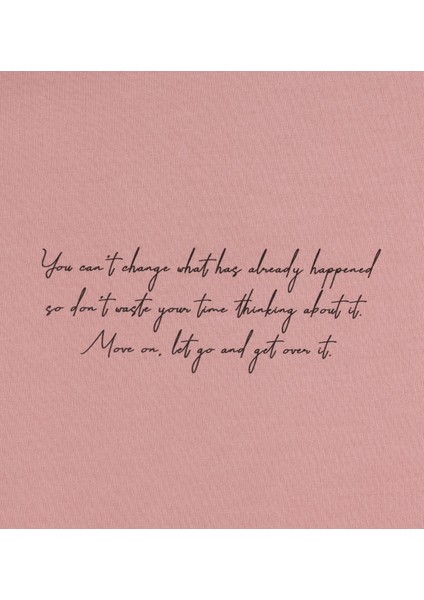 You can't change what has already happened
so don't waste your time thinking about it.
Move on, let go and get over it.